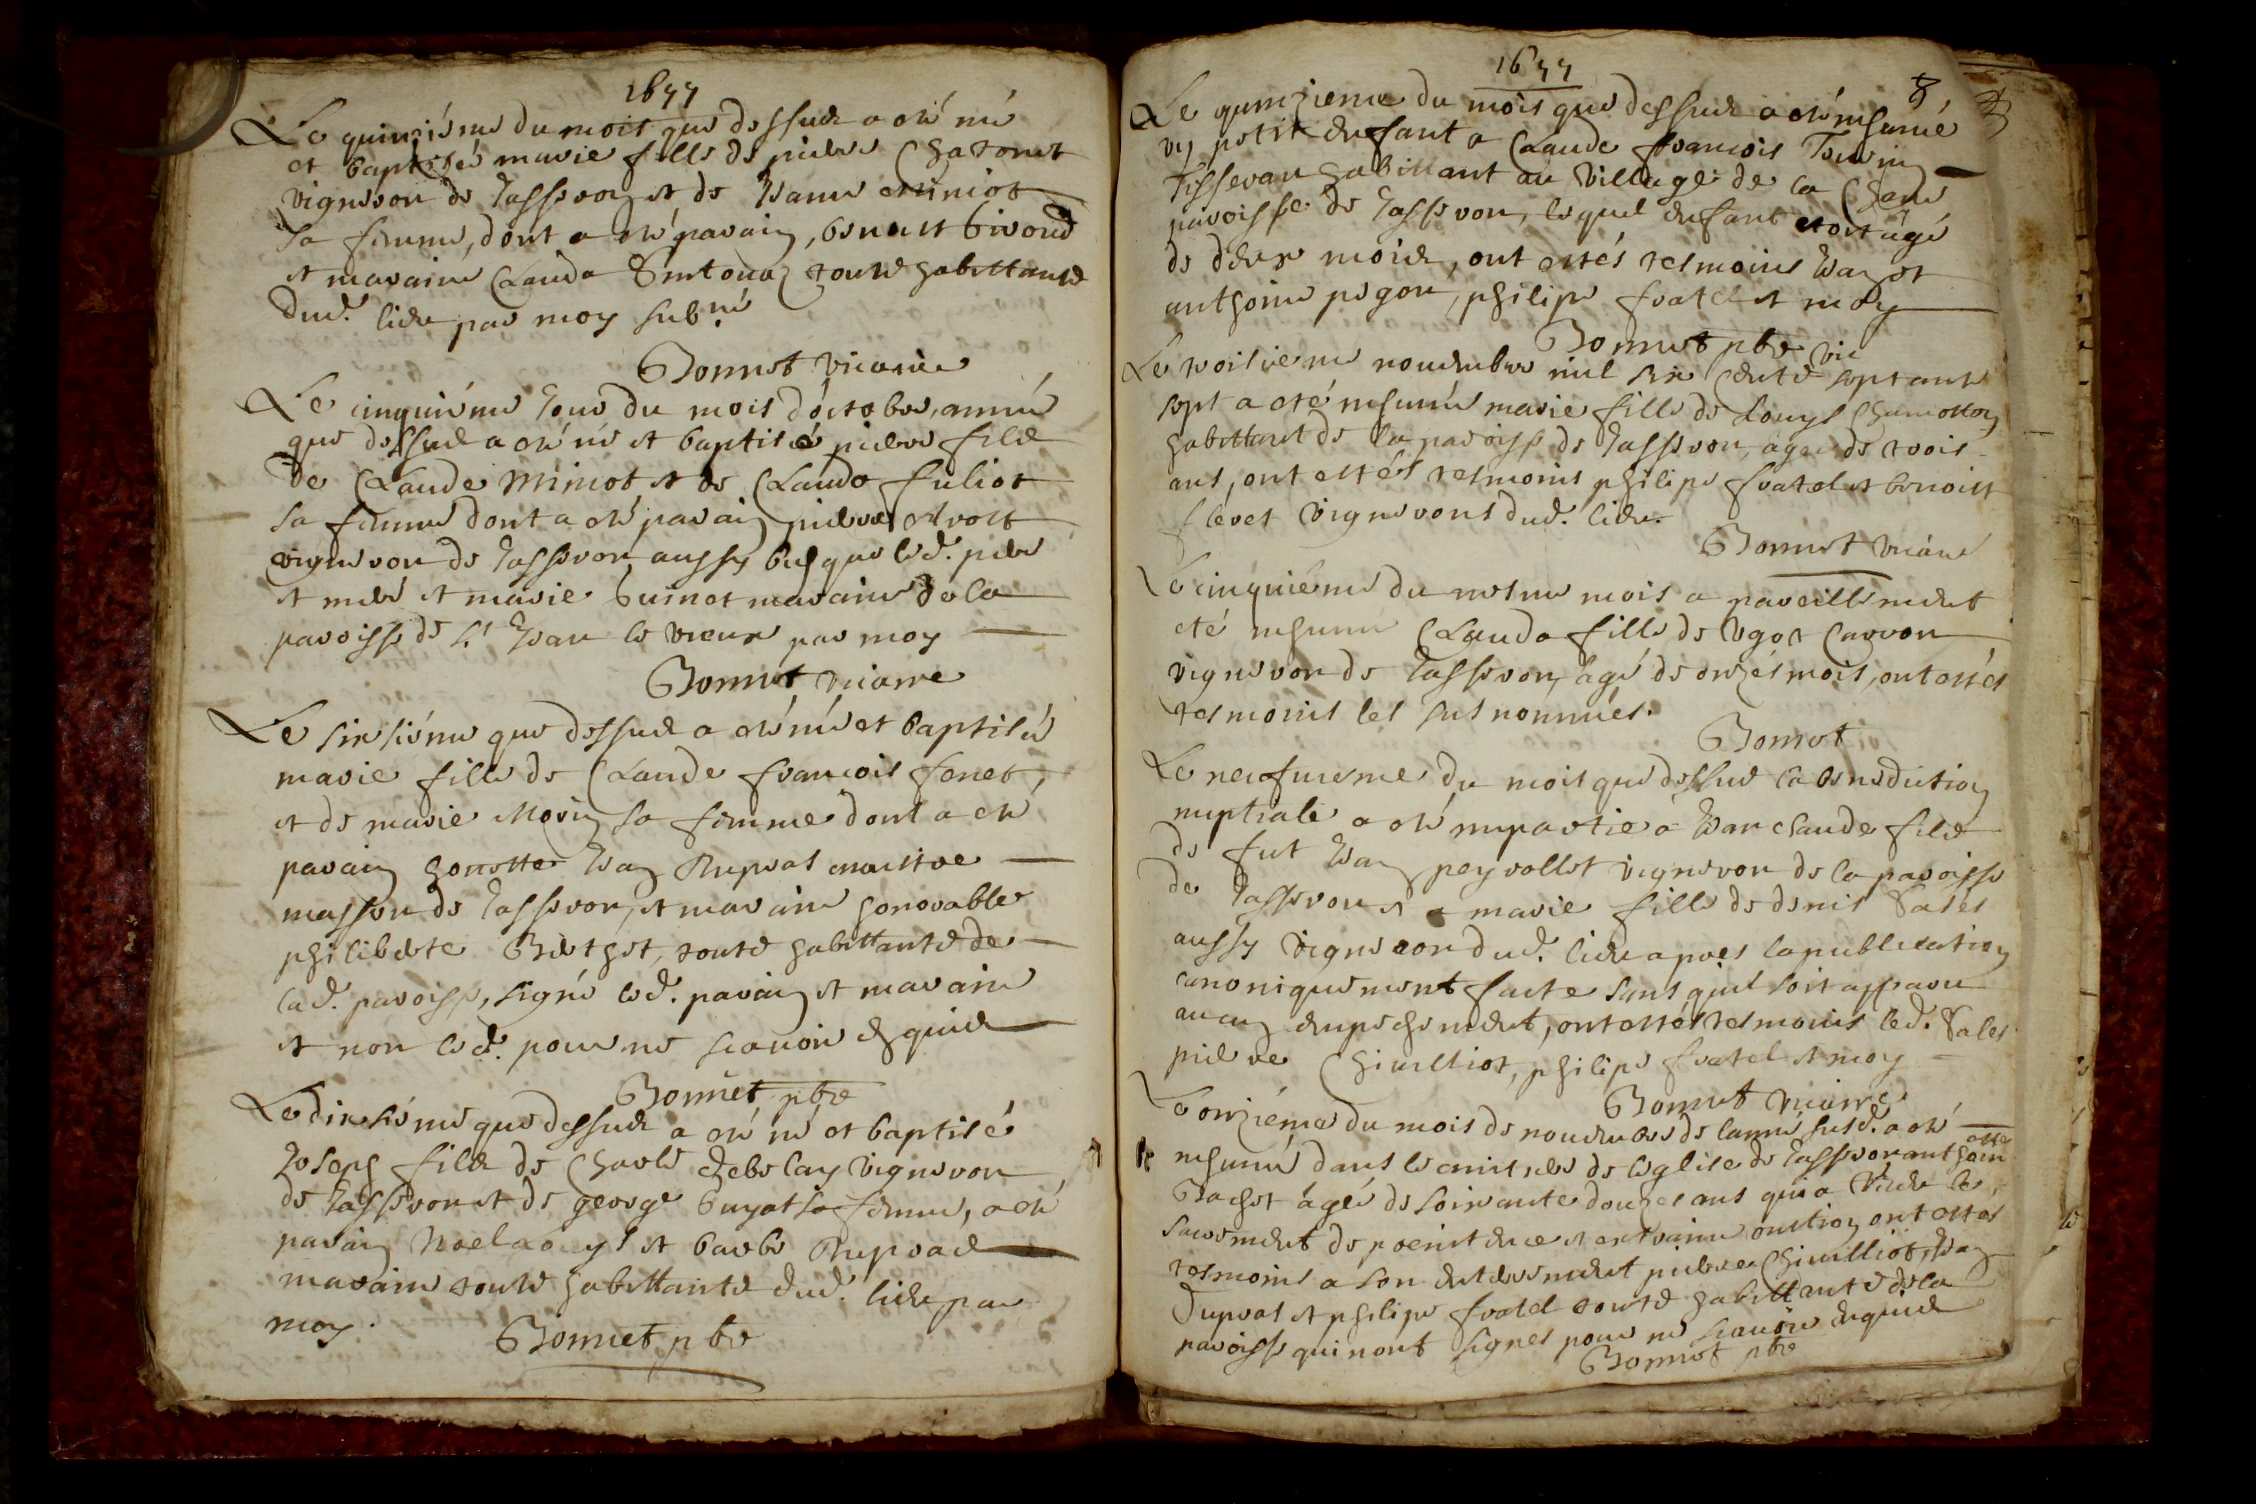 1677
Le quinziéme du mois que dessus a été né
et baptisée marie fille de pierre Chatonet
vigneron de Tasseron et de Jeanne Miniot
sa femme, dont a été parain, benoist
et maraine Clauda touts habittants
dud. lieu par moy subné
Bonnet vicaire
Le cinquiéme Jour du mois doctobre, année
que dessus a été né et baptisé pierre fils
de Claude Miniot et de Clauda Juliot
sa femme dont a été parain pierre
vigneron de Tasseron aussy bien que led. pere
et mere et marie Guinet maraine de la
paroisse de St Jean le vieux par moy
Bonnet vicaire
Le sixsiéme que dessus a été née et baptisée
marie fille de Claude francois fenet,
et de marie Morin sa femme dont a été
parain honette Jean Duprat maistre
masson de Tasseron, et maraine honorable
philiberte Berthet, touts habittants de
lad. paroisse, signé led. parain et maraine
et non led. pour ne scavoir de quis
Bonnet pbre
Le dixsiéme que dessus a été né et baptisé
Joseph fils de Charle debelay vigneron
de Tasseron et de george Guyot sa femme, a été
parain Noel et barbe Duprad
maraine touts habittants dud. lieu par
moy.
Bonnet pbre
1677
8
Le quinzieme du mois que dessus a été inhumé
un petit enfant a Claude francois
Tisseran habittant au village de la Chene
paroisse de Tasseron, lequel enfant etoit agé
de deux mois, ont estés tesmoins Jean et
anthoine pegon, philipe fratel et moy
Bonnet pbre vic
Le troisieme nouembre mil six cents septante
sept a eté inhumée marie fille de Louys Chamotton
habittant de la paroisse de Tasseron, agée de trois
ans, ont estés tesmoins philipe fratel et benoist
vignerons dud. lieu.
Bonnet vicaire
Le cinquiéme du mesme mois a pareillement
eté inhumée Clauda fille de Ugot Carron
vigneron de Tasseron, agé de onzés mois, ont estés
tesmoins les sus nommés.
Bonnet
Le neufuieme du mois que dessus la benediction
nuptiale a été impartie a Jean claude fils
de fut Jean peyrollet vigneron de la paroisse
de Tasseron et a marie fille de denis Sales
aussy vigneron dud. lieu apres la publication
canoniquement faite sans quil soit apparu
aucun empechement, ont estés tesmoins led. Sales
pierre Chiuilliot, philipe fratel et moy
Bonnet vicaire
Le onziéme du mois de nouembre de lanné susd. a été
inhumé dans le cimitiere de leglise de Tasseron anthoine
Bachet agée de soixante douzes ans qui a receu le
sacrement de poenitence et extraime onction ont estes
tesmoins a son enterrement pierre Chiuilliot, Jean
Duprat et philipe fratel touts habittants de la
paroisse qui nont signes pour ne scauoir enquis
Bonnet pbre